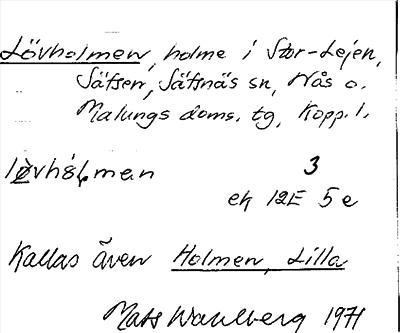 Lövholmen, holme i Stor-Lejen,
Säfsen, Säfsnäs sn, Nås o.
Malungs doms. tg, Kopp. l.
løvhólman 3
ek 12E 5e
Kallas även Holmen, Lilla
Mats Wahlberg 1971